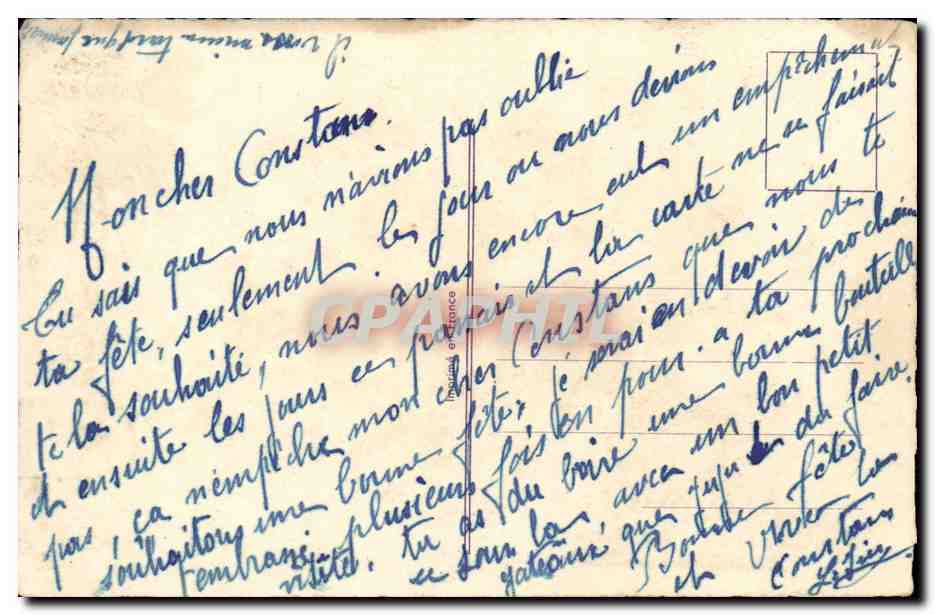 il vaux mieux tard que jamais
Mon cher Constans.
Tu sais que nous n'avions pas oublie
ta fête, seulement les jour ou nous devions
te la souhaité, nous avons encore eut un empêchement
et ensuite les jours ce parait la carte ne se faisait
pas, ça n'empêche mon cher Constans que nous te
souhaitons une bonne fête, je serai en devoir de
t'embrasser plusieurs fois en pour. a ta prochaine
visite. tu as du boire une bonne bouteille
ce jour la, avec un bon petit
gateaux que du faire.
Bonne fête
et vive les
Constans
Imprimé en France
CPAPHIL